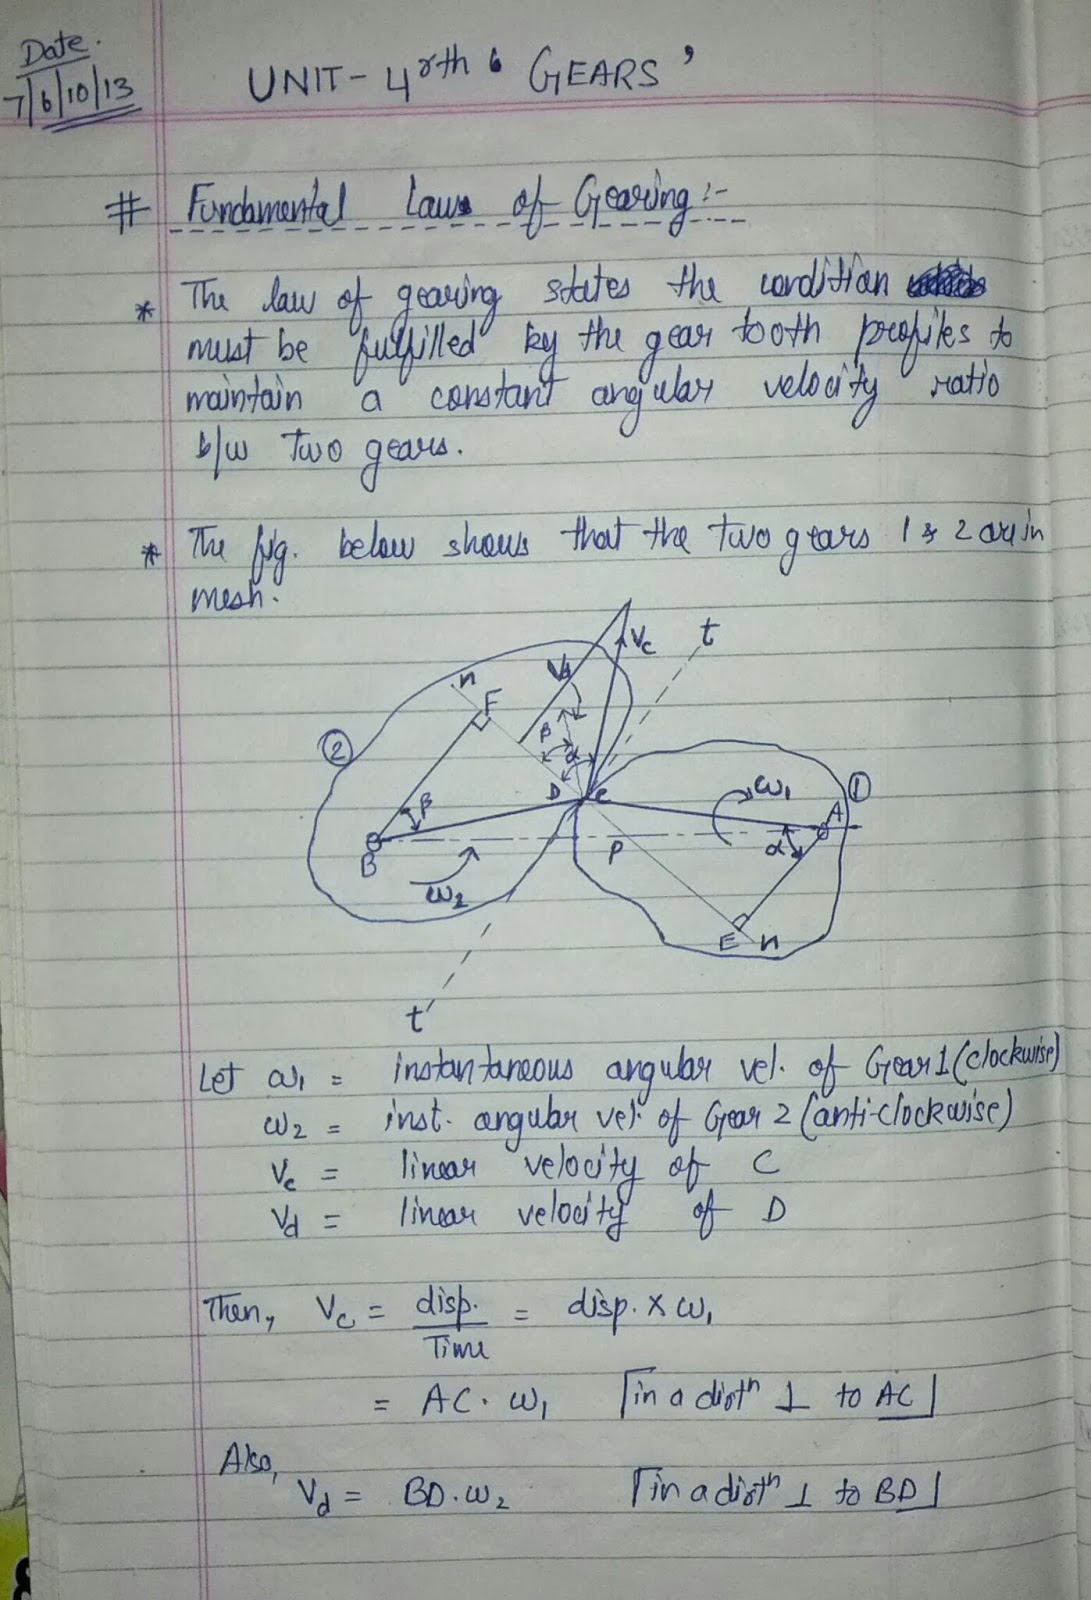 Date.
7/6/10/13
UNIT - 4rth ' GEARS '
# Fundamental Law of Gearing :-
* The law of gearing states the condition
must be fulfilled by the gear tooth profiles to
maintain a constant angular velocity ratio
b/w two gears.
* The fig. below shows that the two gears 1 & 2 are in
mesh.
Vc
t
n
Vd
F
β
α
2
D
C
ω1
1
A
β
α
B
P
ω2
E
n
t'
Let ω1 = instantaneous angular vel. of Gear 1 (clockwise)
ω2 = inst. angular vel. of Gear 2 (anti-clockwise)
Vc = linear velocity of C
Vd = linear velocity of D
Then, Vc = disp. / Time = disp. × ω1
= AC. ω1 [in a dirtn ⊥ to AC]
Also,
Vd = BD. ω2 [in a dirtn ⊥ to BD]